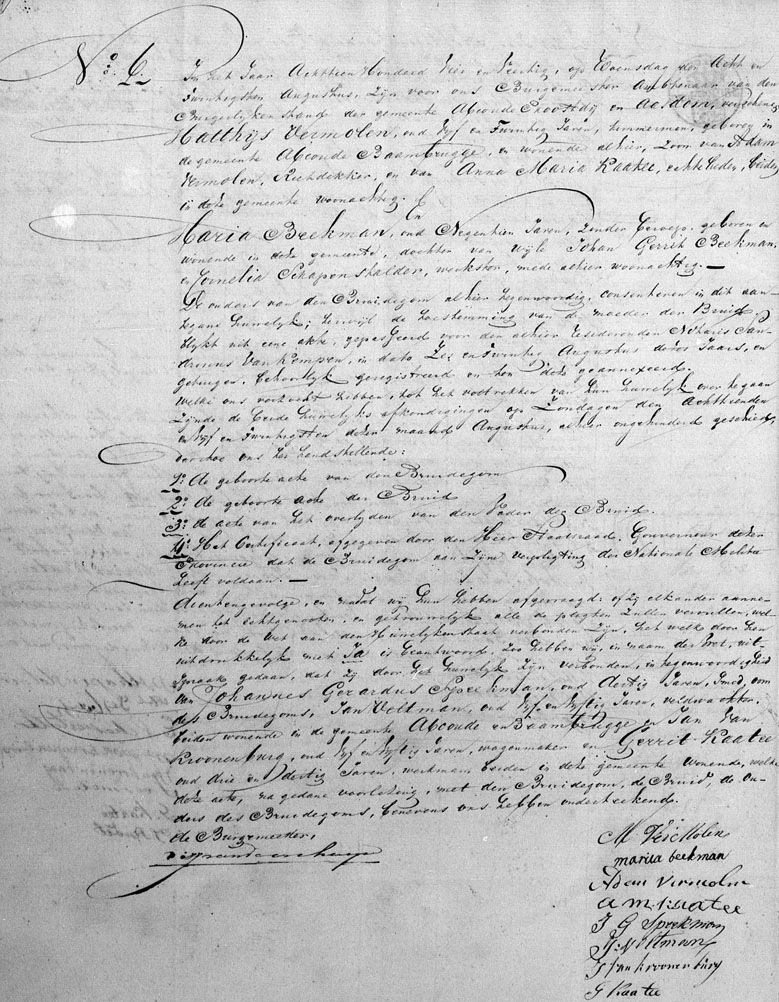 No. 6.
In het Jaar Achttien Honderd Vier en Veertig, op Woensdag den Acht en
Twintigsten Augustus, Zijn voor ons Burgemeester Ambtenaar van den
Burgerlijken stand der gemeente Abcoude Proostdij en Aasdom, verschenen
Matthijs Vermolen, oud Vijf en Twintig Jaren, timmerman, geboren in
de gemeente Abcoude Baambrugge, en wonende alhier, Zoon van Adam
Vermolen, Rietdekker, en van Anna Maria Kaatee, echte lieden, beiden
in deze gemeente woonachtig. En
Maria Beekman, oud Negentien Jaren, Zonder beroep, geboren en
wonende in deze gemeente, dochter van wijle Johan Gerrit Beekman,
en Cornelia Schapenshalder, werkster, mede alhier woonachtig. —
De ouders van den Bruidegom alhier tegenwoordig, consenteren in dit aan-
tegane huwelijk; terwijl de toestemming van de moeder der Bruid,
blijkt uit eene akte, gepasseerd voor den alhier resideerenden Notaris San-
drinus van Kempen, in dato Zes en twintig Augustus dezes Jaars, en
getuigen, behoorlijk geregistreerd en ten deze geannexeerd.
Welke ons verzocht hebben, tot het voltrekken van hun huwelijk over te gaan
Zijnde de beide huwelijks afkondigingen op Zondagen den Achttienden
en Vijf en twintigsten dezer maand Augustus, alhier ongehinderd geschied,
voorts ons ter hand stellende:
1o. de geboorte acte van den Bruidegom
2o. de geboorte acte der Bruid
3o. de acte van het overlijden van den Vader der Bruid.
4o. Het Certificaat, afgegeven door den Heer Staatsraad, Gouverneur dezer
Provincie dat de Bruidegom aan Zijne verpligting der Nationale Militie
heeft voldaan. —
Dientengevolge, en nadat wij hun hebben afgevraagd: of zij elkander aanne-
men tot echtgenooten, en getrouwelijk alle de pligten Zullen vervullen, wel-
ke door de Wet aan den Huwelijken staat verbonden Zijn, het welk door hen
uitdrukkelijk met Ja is beantwoord, Zoo hebben wij, in naam der Wet, uit-
spraak gedaan, dat Zij door het huwelijk Zijn verbonden, in tegenwoordigheid
van Johannes Gerardus Speekman, oud Dertig Jaren, Smid, oom
des Bruidegoms, Jan Voltman, oud Vijf en Vijftig Jaren, veldwachter,
beiden wonende in de gemeente Abcoude en Baambrugge en Jan van
Kroonenburg, oud Vijf en Vijftig Jaren, wagenmaker en Gerrit Kaatee
oud Drie en Dertig Jaren, werkman beiden in deze gemeente wonende, welke
deze acte, na gedane voorlezing, met den Bruidegom, de Bruid, de ou-
ders des Bruidegoms, benevens ons hebben onderteekend.
de Burgemeester,
M VerMolen
marita beekman
Adam Vermolen
a m kaatee
J G Speekman
J: Voltman
J van kroonenburg
G Kaatee